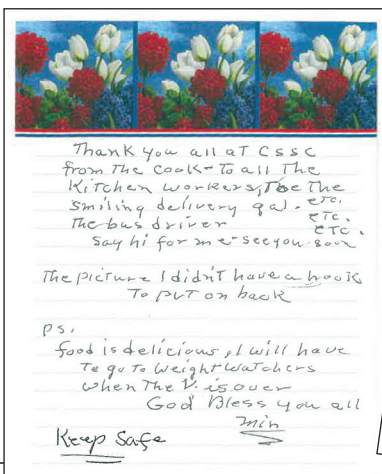 Thank you all at CSSC
from the cook - to all the
Kitchen workers, the
smiling delivery gal. etc.
the bus driver etc.
etc.
say hi for me - see you soon
The picture I didn't have a hook
To put on back
PS.
food is delicious, I will have
To go to Weight Watchers
when The V. is over
God Bless you all
Min
Keep Safe